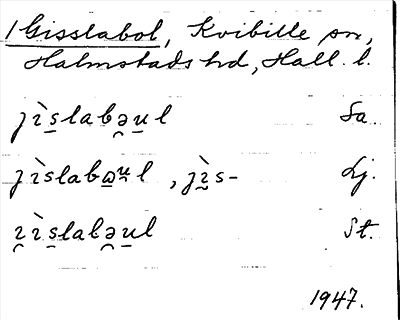 1 Gisslabol, Kvibille sn,
Halmstads hd, Hall. l.
jìs̲labə̯u̲l Sa.
jìslabɷ̲u̯l, jì̲s- Lj.
i̯ìs̲labə̯u̲l St.
1947.